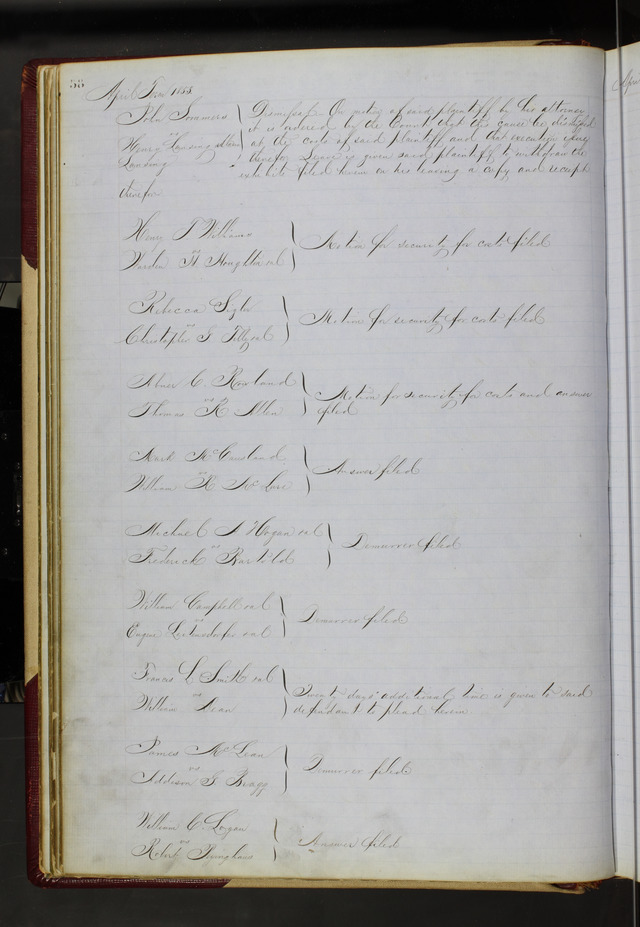 58
April Term 1855
John Sommers
vs
Henry Lansing
Lansing
Dismissed On motion of said plaintiff by his attorney
it is ordered by the Court that this cause be dismissed
at the costs of said plaintiff and that execution issue
therefor Leave is given said plaintiff to withdraw the
exhibit filed herein on his leaving a copy and receipt
therefor
Henry T Williams
vs
Houghton et al
Motion for security for costs filed
Rebecca
vs
Christopher G et al
Motion for security for costs filed
Abner C. Rowland
vs
Thomas R Allen
Motion for security for costs and answer
filed
Mark McCausland
vs
William R McLure
Answer filed
Michael A Hogan et al
vs
Frederick Bartold
Demurrer filed
William Campbell et al
vs
Eugene Leitensdorfer et al
Demurrer filed
Francis L Smith et al
vs
William Dean
Twenty days additional time is given to said
defendant to plead herein
James McLean
vs
Addison G Bragg
Demurrer filed
William C. Logan
vs
Robert Bingham
Answer filed